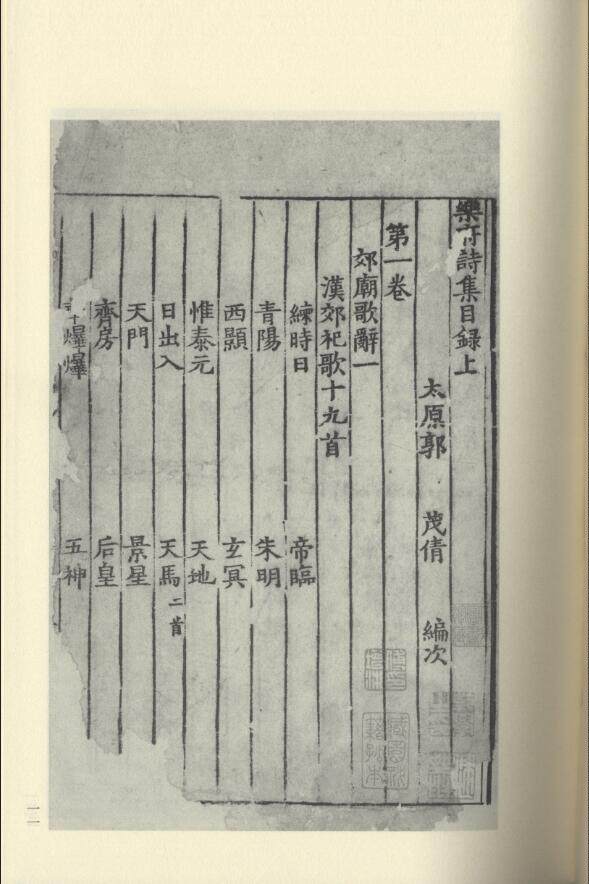 樂府詩集目録上
太原郭 茂倩 編次
第一卷
郊廟歌辭一
漢郊祀歌十九首
練時日 帝臨
青陽 朱明
西顥 玄冥
惟泰元 天地
日出入 天馬二首
天門 景星
齊房 后皇
爗爗 五神